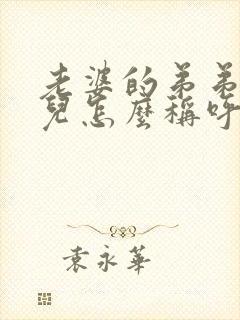 老婆的弟弟
兒怎麼稱呼
袁永華